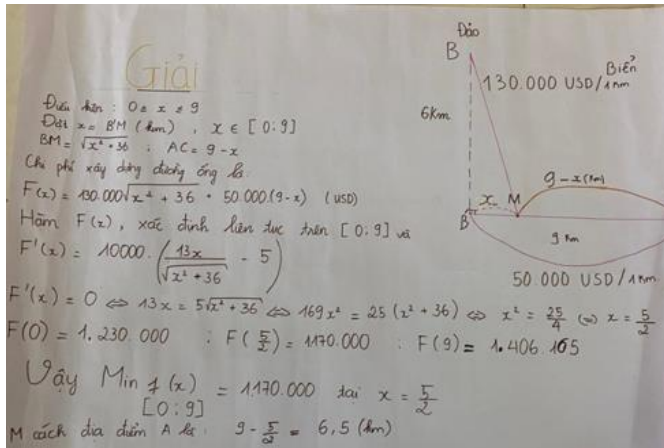 Giải
Điều kiện : 0 ≤ x ≤ 9
Đặt x = B'M (km) , x ∈ [0;9]
BM = √x² + 36 ; AC = 9 - x
Chi phí xây dựng đường ống là
F(x) = 130.000√x² + 36 + 50.000.(9-x) (USD)
Hàm F(x), xác định liên tục trên [0;9] và
F'(x) = 10000.(13x/√x² + 36 - 5)
F'(x) = 0 ⇔ 13x = 5√x² + 36 ⇔ 169x² = 25(x² + 36) ⇔ x² = 25/4 ⇔ x = 5/2
F(0) = 1.230.000 ; F(5/2) = 1170.000 ; F(9) = 1.406.165
Vậy Min f(x) = 1.170.000 tại x = 5/2
[0;9]
M cách địa điểm A là : 9 - 5/2 = 6,5 (km)
Đảo
B
Biển
130.000 USD/1km
6km
9-x(km)
x
M
B
9 km
50.000 USD/1km